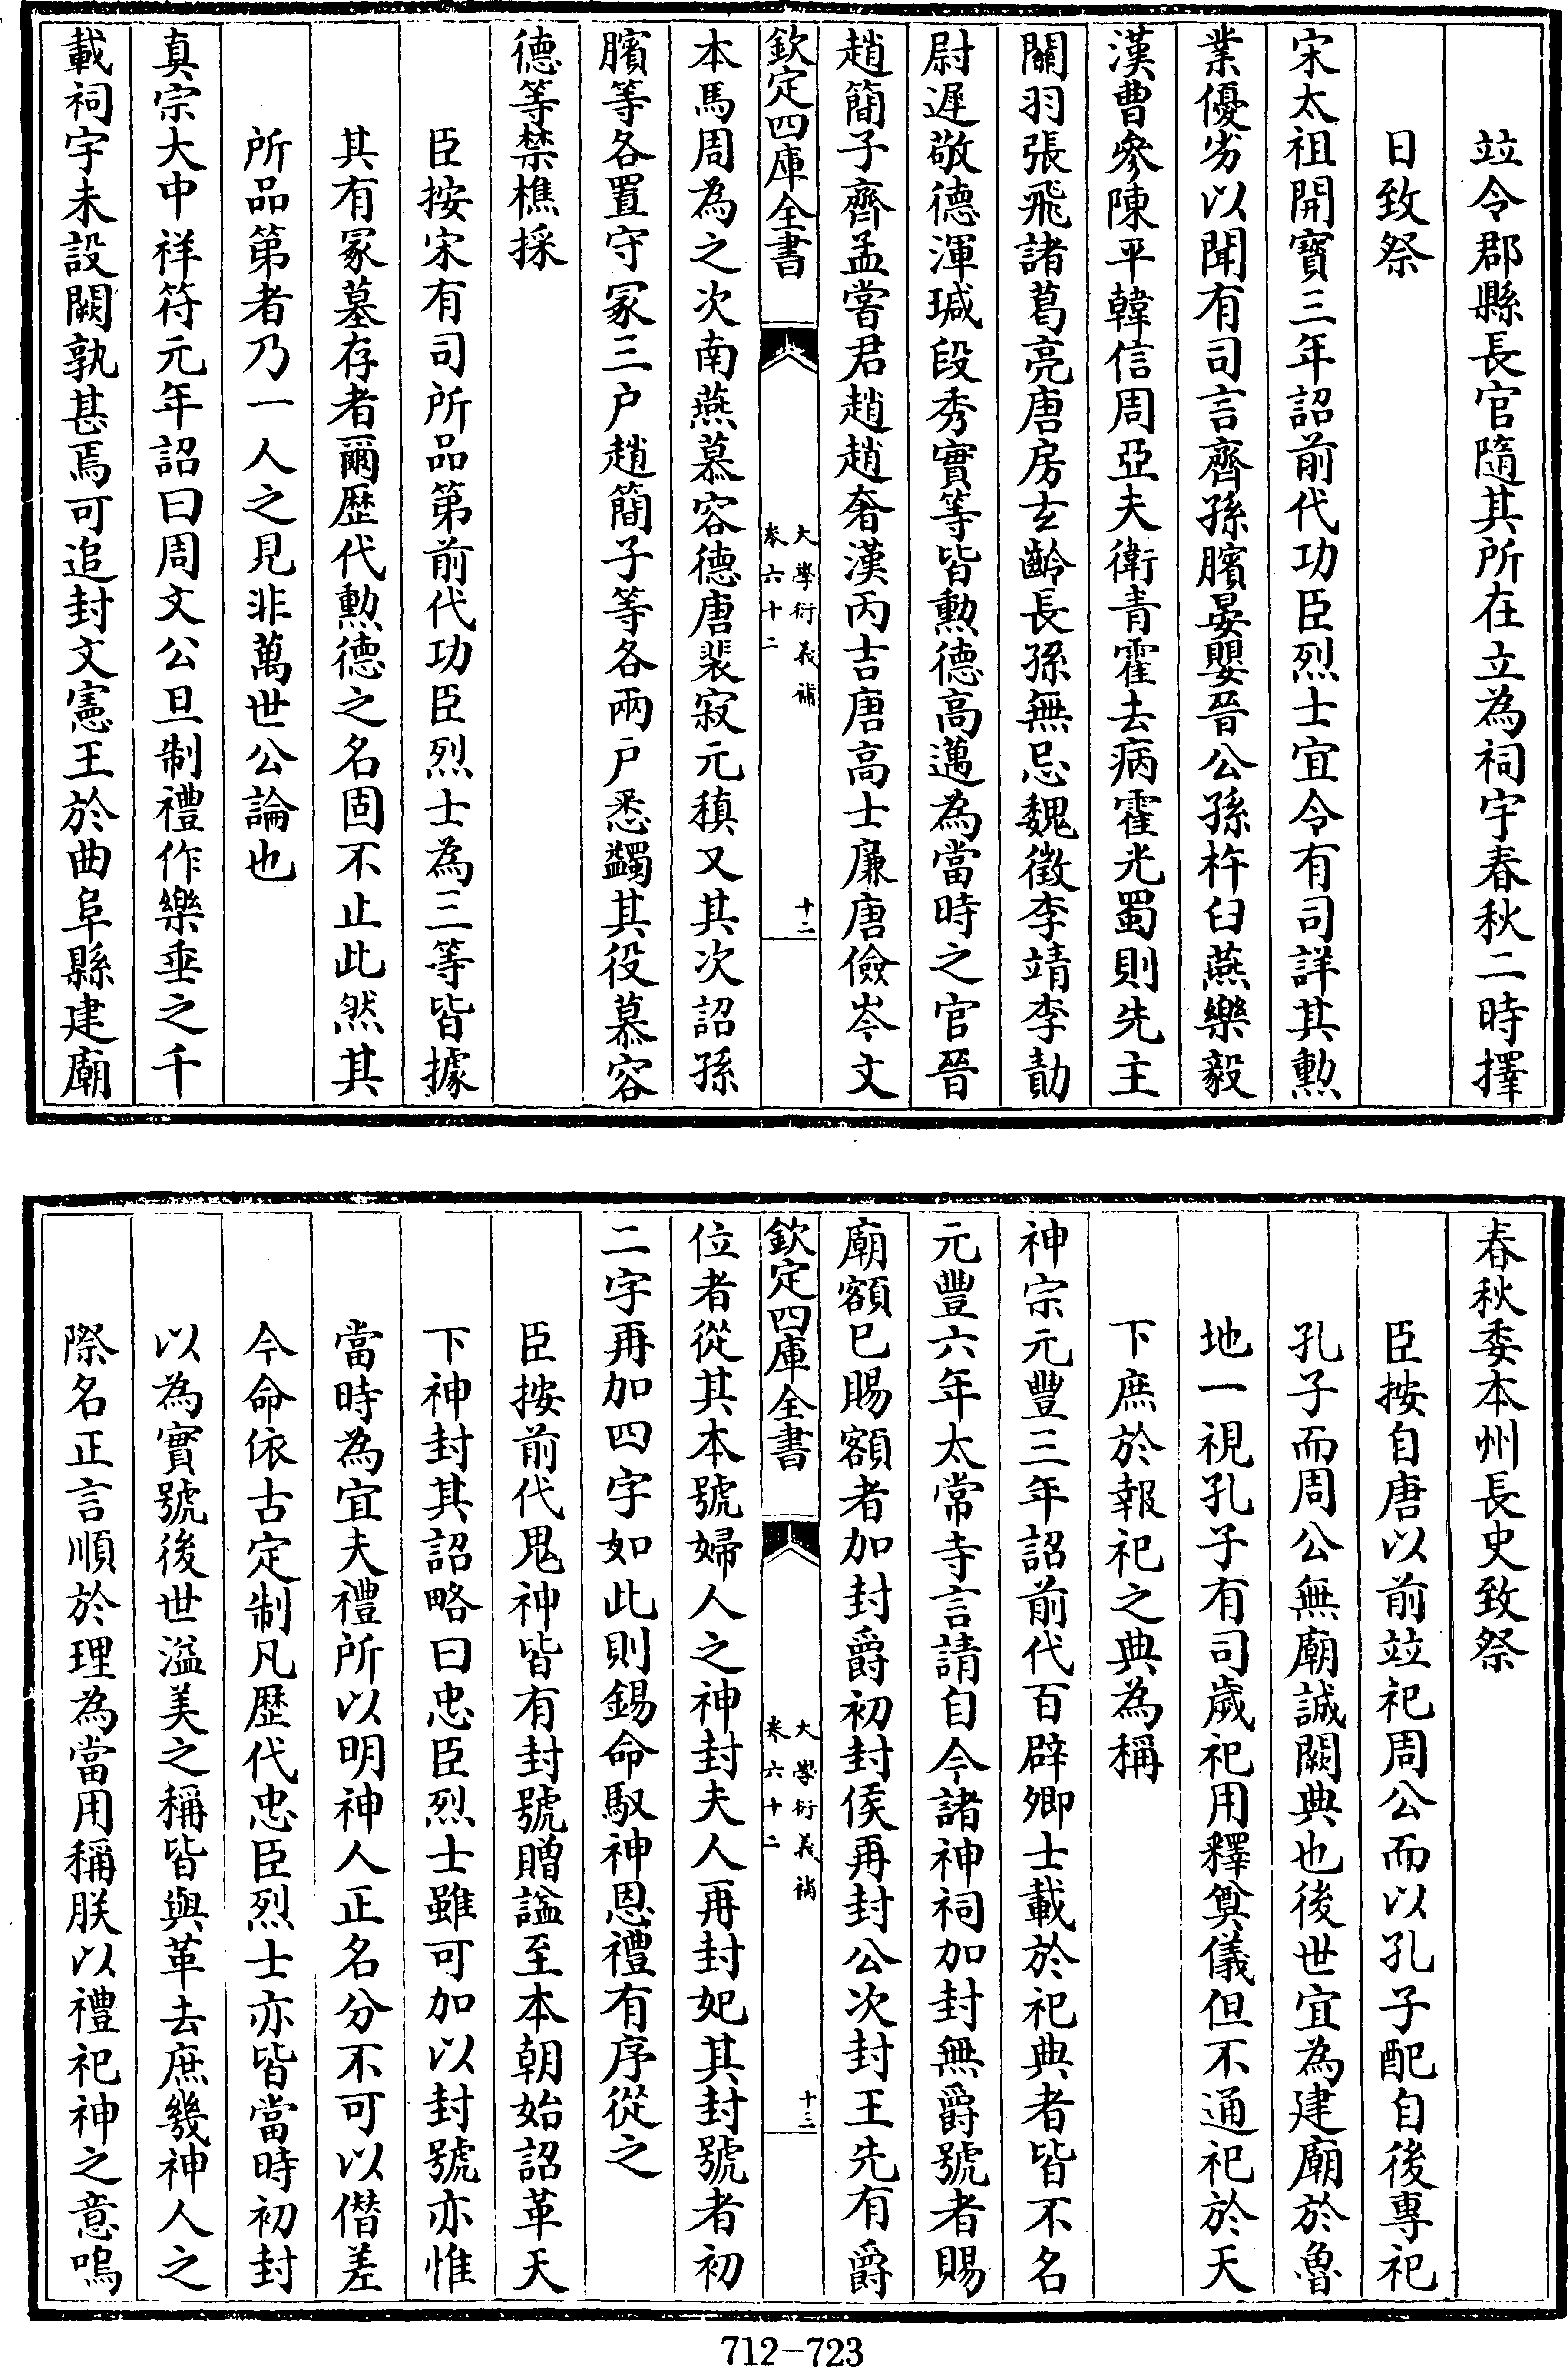 竝令郡縣長官隨其所在立為祠宇春秋二時擇
日致祭
宋太祖開寶三年詔前代功臣烈士宜令有司詳其勲
業優劣以聞有司言齊孫臏晏嬰晉公孫杵臼燕樂毅
漢曹參陳平韓信周亞夫衛青霍去病霍光蜀則先主
關羽張飛諸葛亮唐房玄齡長孫無忌魏徵李靖李勣
尉遲敬德渾瑊段秀實等皆勲德高邁為當時之官晉
趙簡子齊孟嘗君趙趙奢漢丙吉唐高士廉唐儉岑文
欽定四庫全書
大學衍義補
卷六十二
十二
本馬周為之次南燕慕容德唐裴寂元稹又其次詔孫
臏等各置守冢三户趙簡子等各兩户悉蠲其役慕容
德等禁樵採
臣按宋有司所品第前代功臣烈士為三等皆據
其有冢墓存者爾歴代勲德之名固不止此然其
所品第者乃一人之見非萬世公論也
真宗大中祥符元年詔曰周文公旦制禮作樂垂之千
載祠宇未設闕孰甚焉可追封文憲王於曲阜縣建廟
春秋委本州長史致祭
臣按自唐以前竝祀周公而以孔子配自後專祀
孔子而周公無廟誠闕典也後世宜為建廟於魯
地一視孔子有司歲祀用釋奠儀但不通祀於天
下庶於報祀之典為稱
神宗元豐三年詔前代百辟卿士載於祀典者皆不名
元豐六年太常寺言請自今諸神祠加封無爵號者賜
廟額已賜額者加封爵初封侯再封公次封王先有爵
欽定四庫全書
大學衍義補
卷六十二
十三
位者從其本號婦人之神封夫人再封妃其封號者初
二字再加四字如此則錫命馭神恩禮有序從之
臣按前代鬼神皆有封號贈諡至本朝始詔革天
下神封其詔略曰忠臣烈士雖可加以封號亦惟
當時為宜夫禮所以明神人正名分不可以僣差
今命依古定制凡歴代忠臣烈士亦皆當時初封
以為實號後世溢美之稱皆與革去庶幾神人之
際名正言順於理為當用稱朕以禮祀神之意嗚
712-723